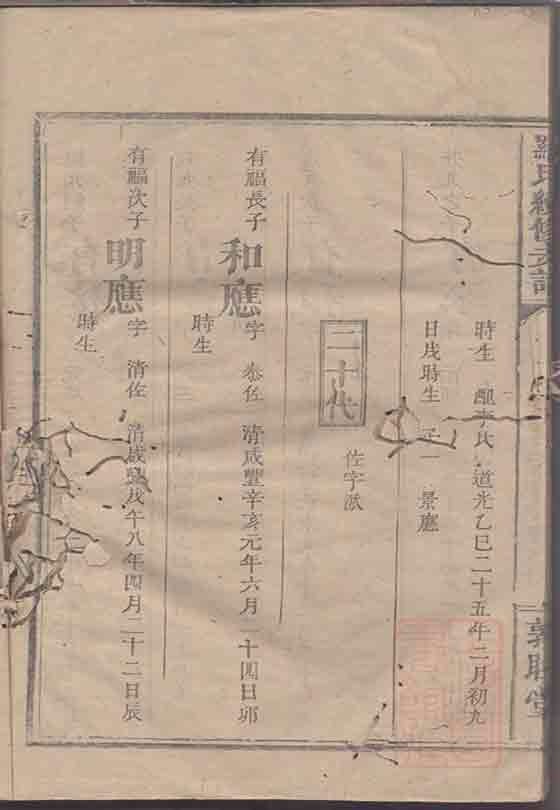 氏續修支譜
敦睦堂
時生 配李氏 道光乙巳二十五年二月初九
日戌時生 子一 景應
二十代
佐字派
有福長子 和應 字 泰佐 清咸豐辛亥元年六月二十四日卯
時生
有福次子 明應 字 清佐 清咸豐戊午八年四月二十二日辰
時生